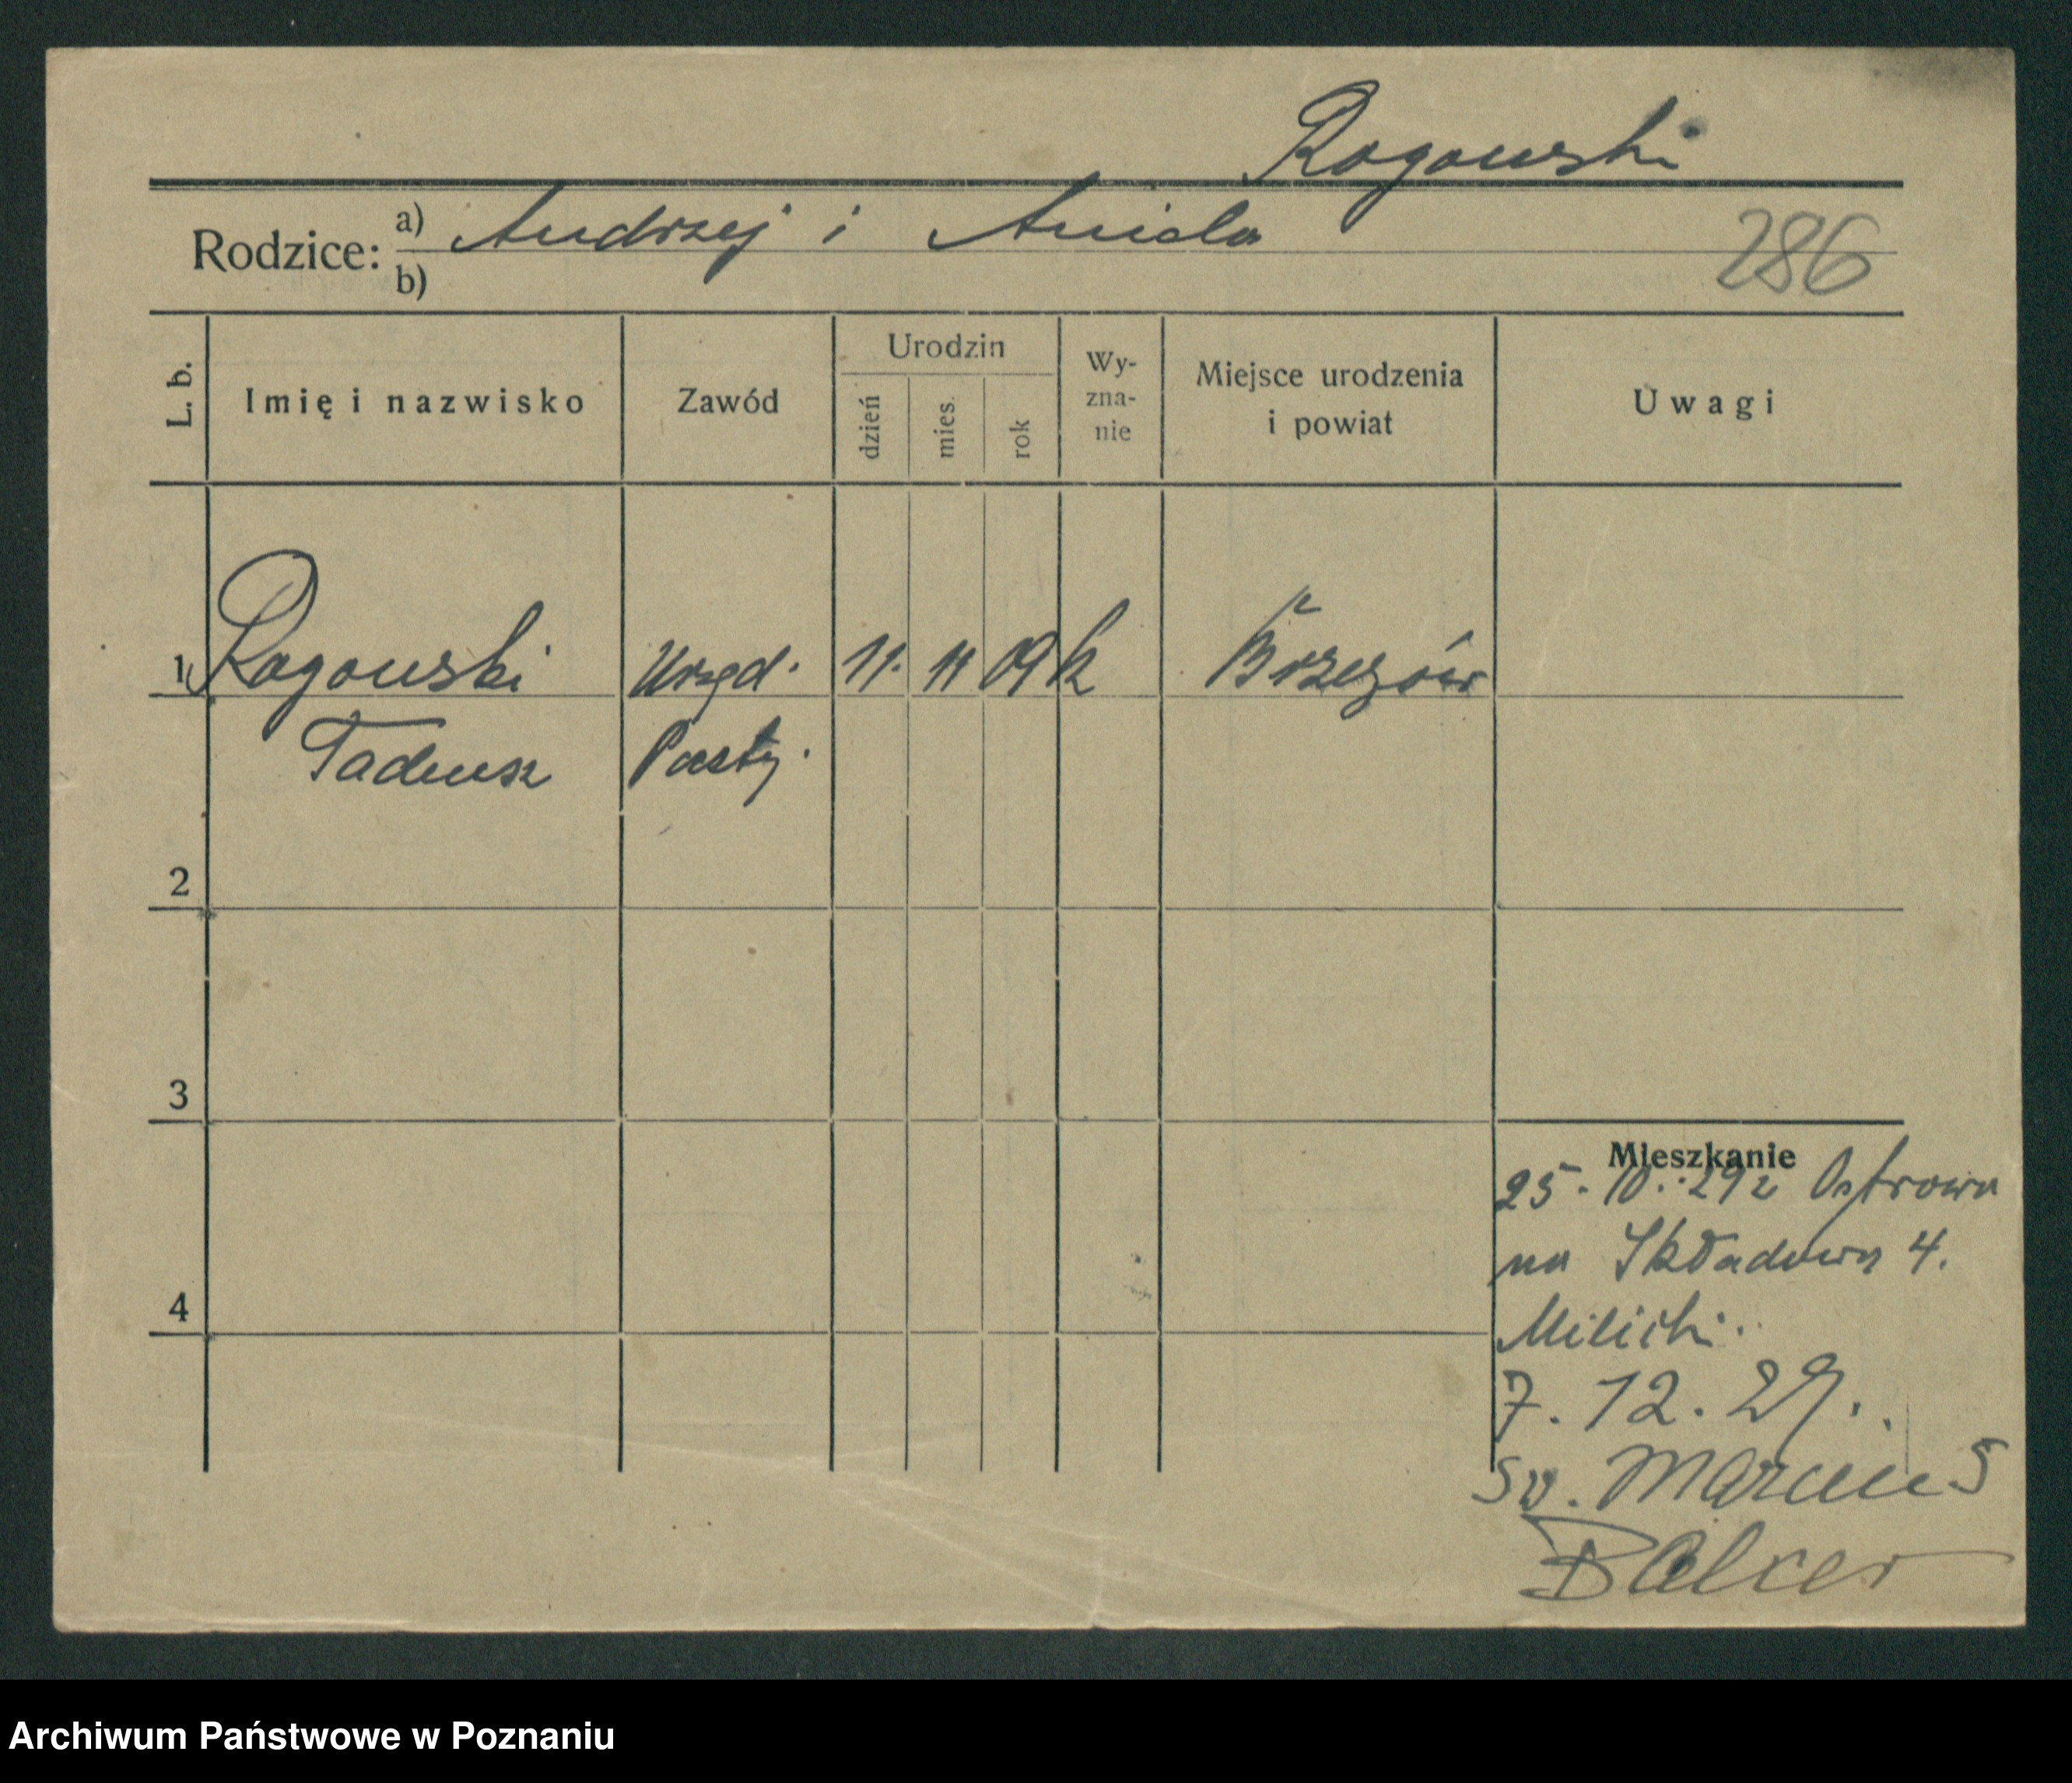 Rogowski
Rodzice: a) Andrzej i Aniela
b)
286
L. b.
Imię i nazwisko
Zawód
Urodzin
dzień
mies.
rok
Wy-
zna-
nie
Miejsce urodzenia
i powiat
Uwagi
1 Rogowski Urzęd. 11. 11 09 k Brzezów
Tadeusz Poszty.
2
3
4
Mieszkanie
25. 10. 29 z Ostrowa
na Składowa 4.
Milicki.
7. 12. 29.
Sw. Marcin 5
Balcer
Archiwum Państwowe w Poznaniu